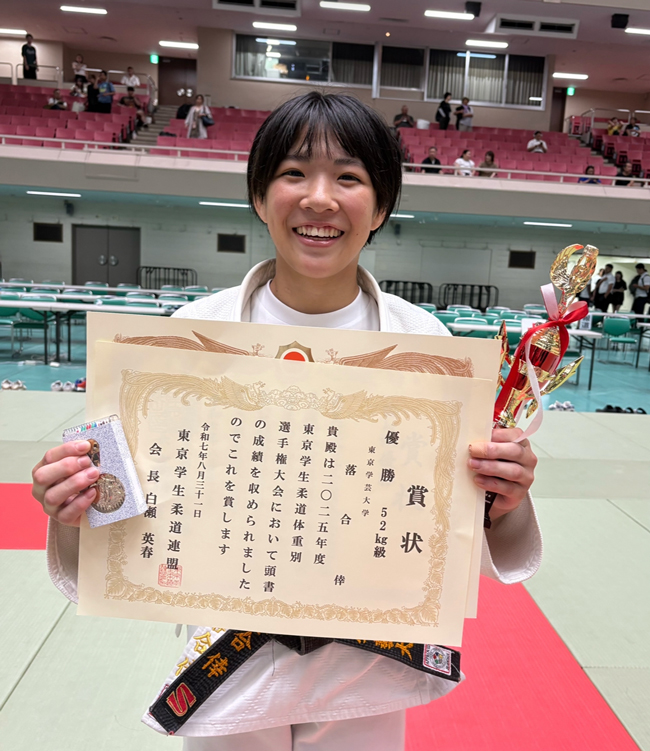 賞状
優勝 52kg級
東京学芸大学
落合 倖
貴殿は二〇二五年度
東京学生柔道体重別
選手権大会において頭書
の成績を収められました
のでこれを賞します
令和七年八月三十一日
東京学生柔道連盟
会長 白瀬 英春
合倖
S